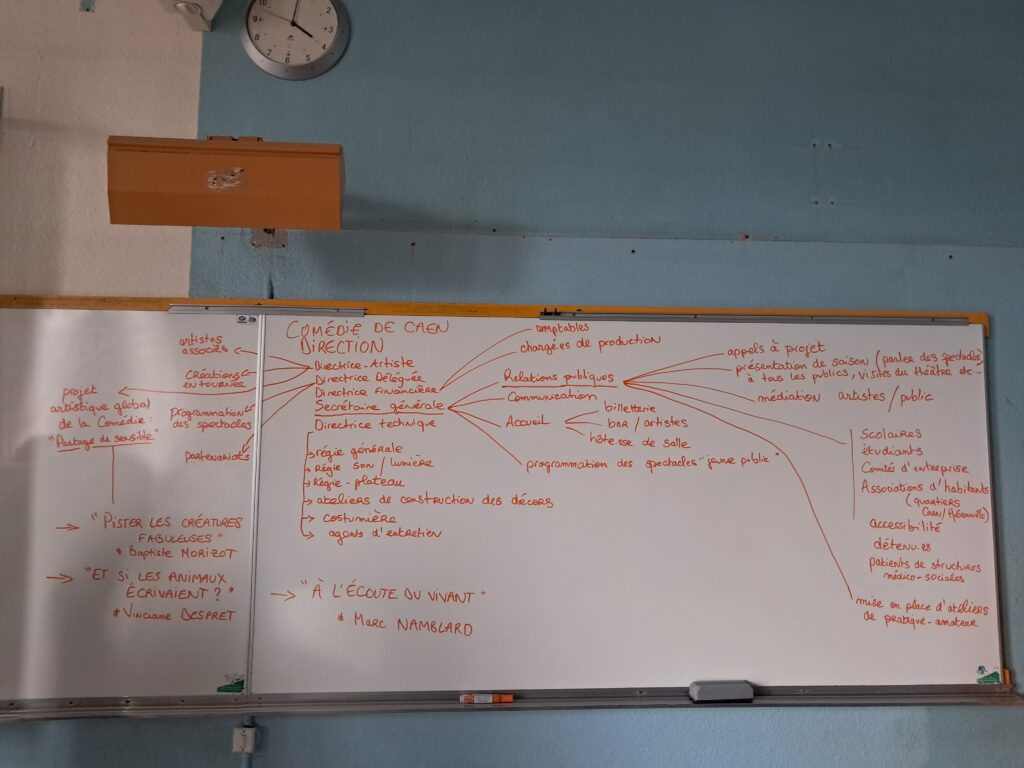 artistes
associés
Créations
en tournée
projet
artistique global
de la Comédie :
"Partage de sensible"
programmation
des spectacles
partenariats
→ "PISTER LES CRÉATURES
FABULEUSES"
* Baptiste MORIZOT
→ "ET SI LES ANIMAUX
ÉCRIVAIENT ?"
* Vinciane DESPRET
COMÉDIE DE CAEN
DIRECTION
Directrice-Artiste
Directrice Déléguée
Directrice Financière
Secrétaire générale
Directrice technique
régie générale
Régie son / lumière
Régie-plateau
ateliers de construction des décors
costumière
agents d'entretien
→ "À L'ÉCOUTE DU VIVANT"
* Marc NAMBLARD
comptables
chargé.es de production
Relations publiques
Communication
Accueil
billetterie
bar / artistes
hôtesse de salle
programmation des spectacles "jeune public"
appels à projet
présentation de saison (parler des spectacles)
à tous les publics, visites du théâtre etc...
médiation artistes / public
scolaires
étudiants
Comités d'entreprise
Associations d'habitants
(quartiers
Caen/Hérouville)
accessibilité
détenu.es
patients de structures
médico-sociales
mise en place d'atéliers
de pratique-amateur
12
10
9
8
7
6
5
4
3